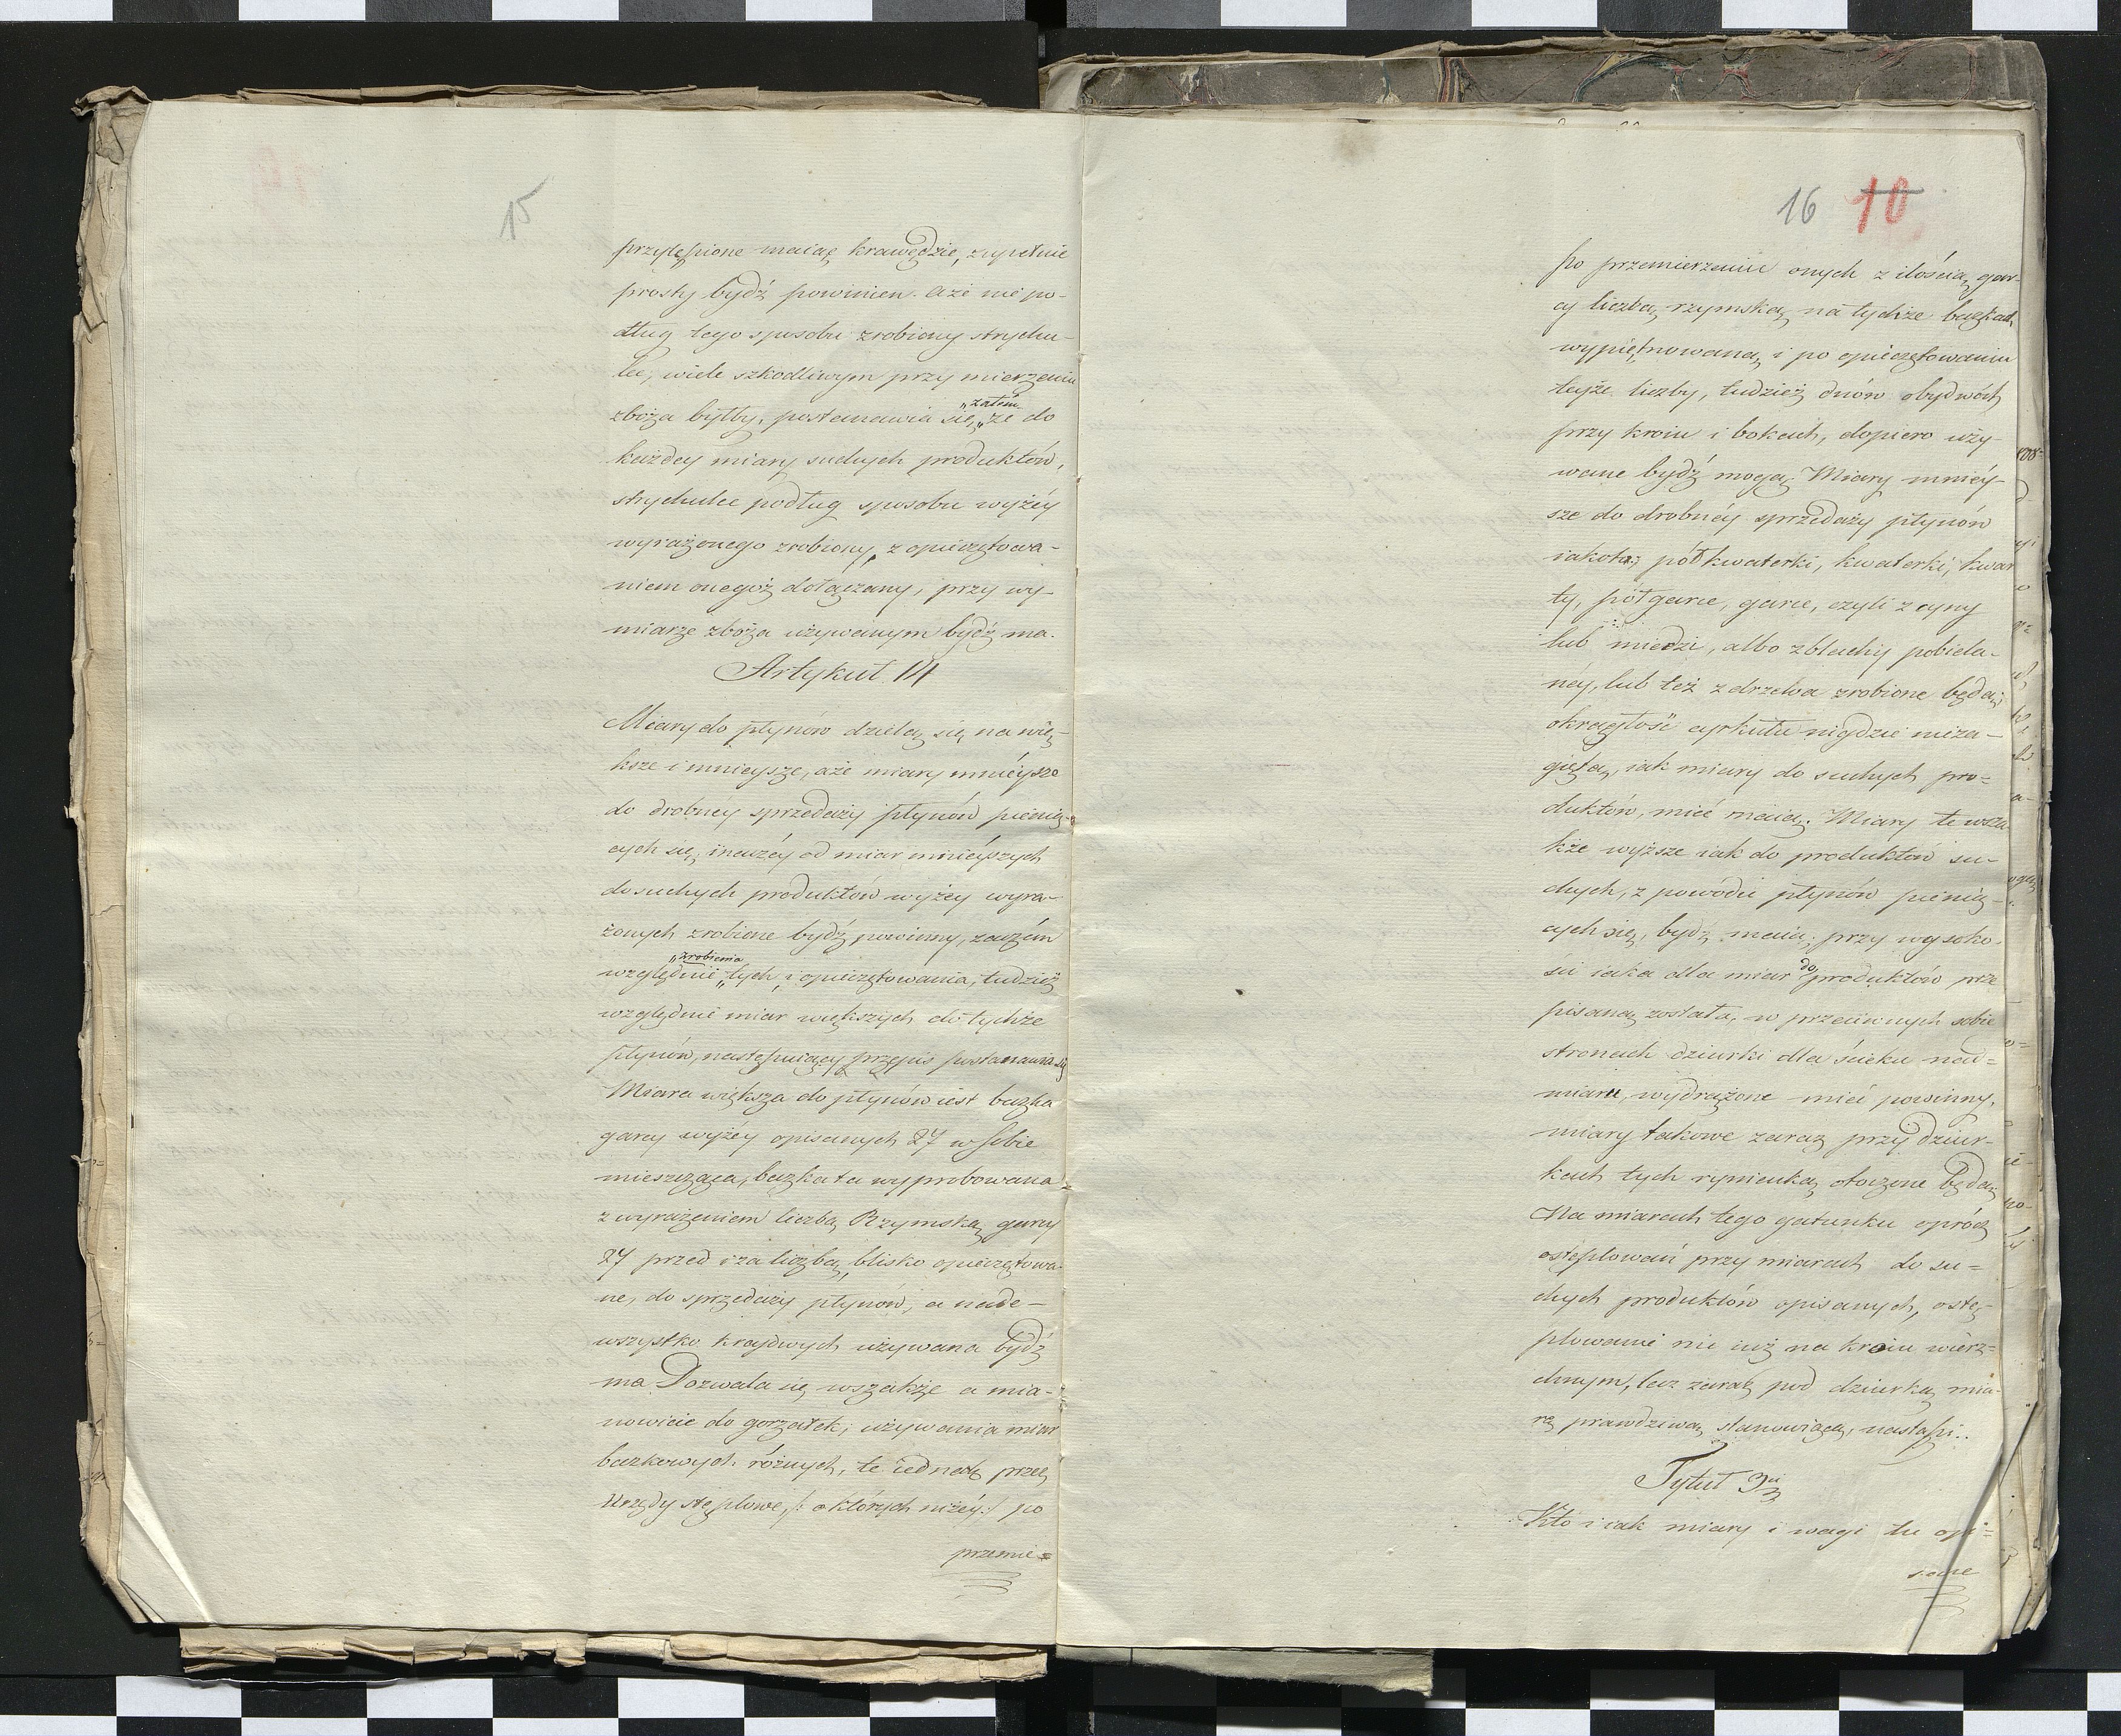 15
przytępione maiąc krawędzie, zupełnie
prosty bydź powinien. aże nie po-
dług tego sposobu zrobiony strychu-
lec, wiele szkodliwym przy mierzeniu
„zatém
zboża byłby, postanawia się, „że do
każdey miary suchych produktów,
strychulec podług sposobu wyżéy
wyrażonego zrobiony, z opieczętowa-
niem onegoż dołączany, przy wy-
miarze zboża używanym bydź ma.
Artykuł 14
Miary do płynów dzielą się na wię-
ksze i mnieysze, aże miary mniéysze
do drobney sprzedaży płynów pienią-
cych się, inaczéy od miar mniéyszych
do suchych produktów wyżey wyra-
żonych zrobione bydź powinny, zaczém
„zrobienia
względnie „tych i opieczętowania, tudzież
względnie miar większych do tychże
płynów, następuiący przepis postanawia się
Miara większa do płynów iest beczka
garcy wyżéy opisanych 27 w sobie
mieszcząca, beczka ta wyprobowana
z wyrażeniem liczbą Rzymską garcy
27 przed i za liczbą blisko opieczętowa-
ne, do sprzedaży płynów, a nade-
wszystko kraiowych używana bydź
ma Dozwala się wszakże a mia-
nowicie do gorzałek, używania miar
beczkowych różnych, te iednak przez
Urzędy stęplowe, /: o których niżéy :/ po
przemie=
16 10
po przemierzeniu onych z ilością gar-
cy liczbą rzymską na tychże beczkach
wypiętnowaną i po opieczętowaniu
teyże liczby, tudzież dnów obydwóch
przy kroiu i bokach, dopiero uży-
wane bydź mogą. Miary mniéy-
sze do drobnéy sprzedaży płynów
iakoto; pół kwaterki, kwaterki, kwar
ty, półgarce, garce, czyli z cyny
lub miedzi, albo z blachy pobiela-
néy, lub też z drzewa zrobione będą,
okrągłość cyrkułu nigdzie nieza-
giętą, iak miary do suchych pro=
duktów, mieć maią. Miary te wsza
kże wyższe iak do produktów su-
chych, z powodu płynów pienią-
cych się, bydź maią, przy wysoko-
do
ści iaka dla miar produktów prze
pisaną została, w przeciwnych sobie
stronach dziurki dla ścieku nad=
miaru, wydrążone mieć powinny,
miary takowe zaraz przy dziur-
kach tych rynienką otoczone będą.
Na miarach tego gatunku oprócz
ostęplowań przy miarach do su=
chych produktów opisanych, ostę-
plowanie nie iuż na kroiu wierz=
chnym, lecz zaraz pod dziurką mia-
rę prawdziwą stanowiącą, nastąpi..
Tytuł 3ci
Kto i iak miary i wagi tu opi=
sane